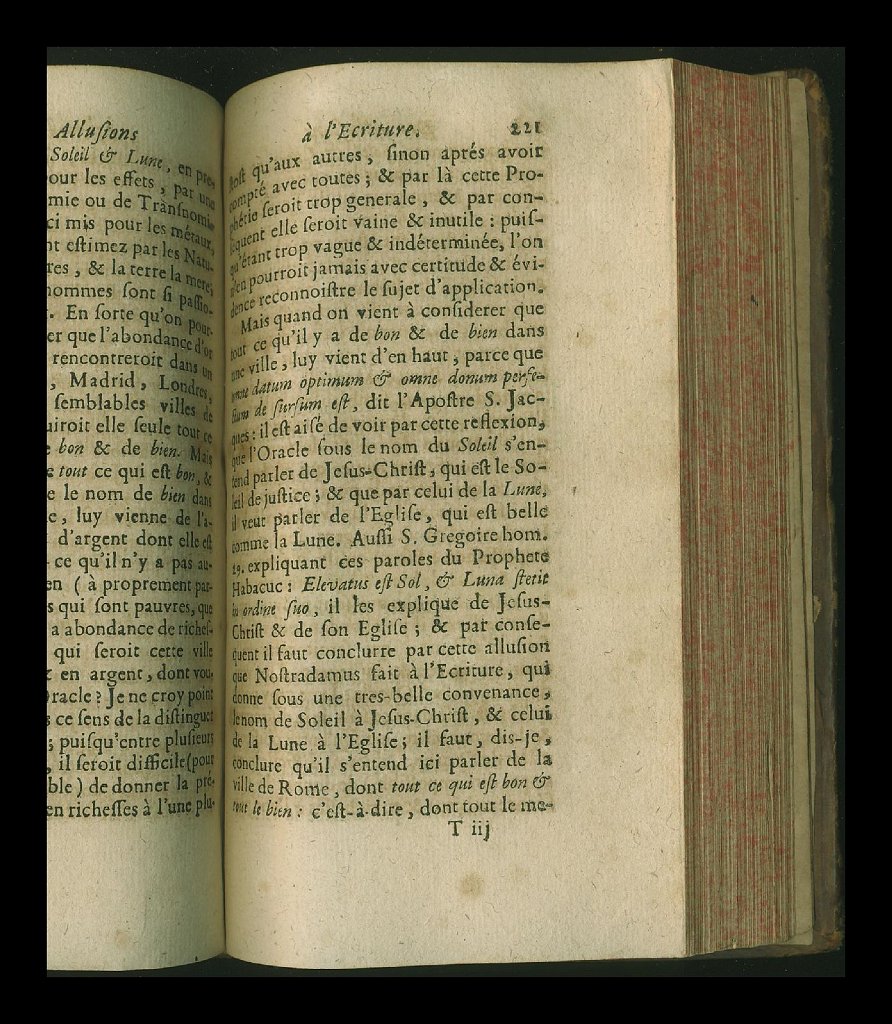 Alluſions
Soleil & Lune, en pre-
our les effets, par une
mie ou de Tranſnomi-
ci mis pour les métaux,
nt eſtimez par les Natu-
res, & la terre la mere;
hommes ſont ſi paſſio-
. En ſorte qu'on pour-
er que l'abondance d'or
rencontreroit dans un
, Madrid, Londres,
ſemblables villes de
uiroit elle ſeule tout ce
bon & de bien. Mais
tout ce qui eſt bon, &
e le nom de bien dans
e, luy vienne de l'a-
d'argent dont elle eſt
ce qu'il n'y a pas au-
en ( à proprement par-
s qui ſont pauvres, que
a abondance de richeſ-
qui ſeroit cette ville
& en argent, dont vou-
racle ? Je ne croy point
s ce ſens de la diſtinguet
; puiſqu'entre pluſieurs
, il ſeroit difficile (pour
ble) de donner la pre-
en richeſſes à l'une plu-
à l'Ecriture. 221
ſtoſt qu'aux autres, ſinon aprés avoir
compté avec toutes ; & par là cette Pro-
phétie ſeroit trop generale, & par con-
ſequent elle ſeroit vaine & inutile : puiſ-
qu'étant trop vague & indéterminée, l'on
n'en pourroit jamais avec certitude & évi-
dence reconnoiſtre le ſujet d'application.
Mais quand on vient à conſiderer que
tout ce qu'il y a de bon & de bien dans
une ville, luy vient d'en haut, parce que
omne datum optimum & omne donum perfe-
ctum de ſurſum eſt, dit l'Apoſtre S. Jac-
ques : il eſt aiſé de voir par cette reflexion,
que l'Oracle ſous le nom du Soleil s'en-
tend parler de Jeſus-Chriſt, qui eſt le So-
leil de juſtice ; & que par celui de la Lune,
il veut parler de l'Egliſe, qui eſt belle
comme la Lune. Auſſi S. Gregoire hom.
29. expliquant ces paroles du Prophete
Habacuc : Elevatus eſt Sol, & Luna ſtetit
in ordine ſuo, il les explique de Jeſus-
Chriſt & de ſon Egliſe ; & par conſe-
quent il faut conclurre par cette alluſion
que Noſtradamus fait à l'Ecriture, qui
donne ſous une tres-belle convenance,
le nom de Soleil à Jeſus-Chriſt, & celui
de la Lune à l'Egliſe ; il faut, dis-je,
conclure qu'il s'entend ici parler de la
ville de Rome, dont tout ce qui eſt bon &
tout le bien : c'eſt-à-dire, dont tout le me-
T iij